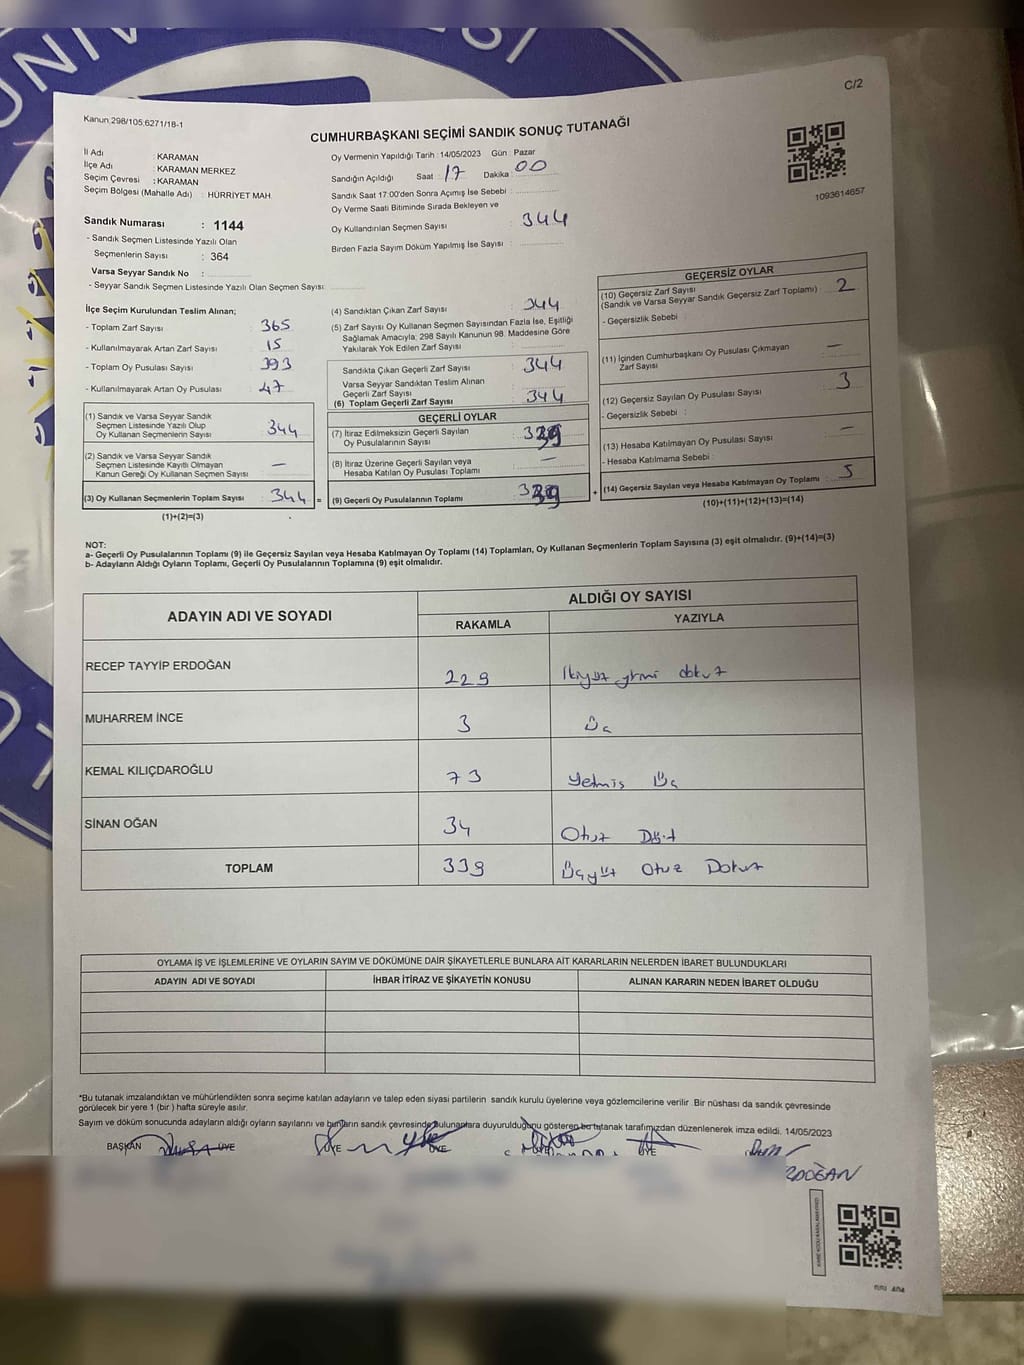 C/2
Kanun 298/105,6271/18-1
CUMHURBAŞKANI SEÇİMİ SANDIK SONUÇ TUTANAĞI
1093614657
İl Adı : KARAMAN
İlçe Adı : KARAMAN MERKEZ
Seçim Çevresi : KARAMAN
Seçim Bölgesi (Mahalle Adı) : HÜRRİYET MAH.
Oy Vermenin Yapıldığı Tarih : 14/05/2023 Gün : Pazar
Sandığın Açıldığı Saat : 17 Dakika : 00
Sandık Saat 17:00'den Sonra Açımış İse Sebebi :
Oy Verme Saati Bitiminde Sırada Bekleyen ve
Oy Kullandırılan Seçmen Sayısı : 344
Birden Fazla Sayım Döküm Yapılmış İse Sayısı :
Sandık Numarası : 1144
- Sandık Seçmen Listesinde Yazılı Olan
Seçmenlerin Sayısı : 364
Varsa Seyyar Sandık No :
- Seyyar Sandık Seçmen Listesinde Yazılı Olan Seçmen Sayısı:
İlçe Seçim Kurulundan Teslim Alınan;
- Toplam Zarf Sayısı : 365
- Kullanılmayarak Artan Zarf Sayısı : 15
- Toplam Oy Pusulası Sayısı : 393
- Kullanılmayarak Artan Oy Pusulası : 47
(1) Sandık ve Varsa Seyyar Sandık
Seçmen Listesinde Yazılı Olup
Oy Kullanan Seçmenlerin Sayısı : 344
(2) Sandık ve Varsa Seyyar Sandık
Seçmen Listesinde Kayıtlı Olmayan
Kanun Gereği Oy Kullanan Seçmen Sayısı : —
(3) Oy Kullanan Seçmenlerin Toplam Sayısı : 344 =
(1)+(2)=(3)
(4) Sandıktan Çıkan Zarf Sayısı : 344
(5) Zarf Sayısı Oy Kullanan Seçmen Sayısından Fazla İse, Eşitliği
Sağlamak Amacıyla; 298 Sayılı Kanunun 98. Maddesine Göre
Yakılarak Yok Edilen Zarf Sayısı :
Sandıkta Çıkan Geçerli Zarf Sayısı : 344
Varsa Seyyar Sandıktan Teslim Alınan
Geçerli Zarf Sayısı :
(6) Toplam Geçerli Zarf Sayısı : 344
GEÇERLİ OYLAR
(7) İtiraz Edilmeksizin Geçerli Sayılan
Oy Pusulalarının Sayısı : 339
(8) İtiraz Üzerine Geçerli Sayılan veya
Hesaba Katılan Oy Pusulası Toplamı : —
(9) Geçerli Oy Pusulalarının Toplamı : 339 +
GEÇERSİZ OYLAR
(10) Geçersiz Zarf Sayısı
(Sandık ve Varsa Seyyar Sandık Geçersiz Zarf Toplamı) : 2
- Geçersizlik Sebebi :
(11) İçinden Cumhurbaşkanı Oy Pusulası Çıkmayan
Zarf Sayısı : —
(12) Geçersiz Sayılan Oy Pusulası Sayısı : 3
- Geçersizlik Sebebi :
(13) Hesaba Katılmayan Oy Pusulası Sayısı : —
- Hesaba Katılmama Sebebi :
(14) Geçersiz Sayılan veya Hesaba Katılmayan Oy Toplamı : 5
(10)+(11)+(12)+(13)=(14)
NOT:
a- Geçerli Oy Pusulalarının Toplamı (9) ile Geçersiz Sayılan veya Hesaba Katılmayan Oy Toplamı (14) Toplamları, Oy Kullanan Seçmenlerin Toplam Sayısına (3) eşit olmalıdır. (9)+(14)=(3)
b- Adayların Aldığı Oyların Toplamı, Geçerli Oy Pusulalarının Toplamına (9) eşit olmalıdır.
ADAYIN ADI VE SOYADI ALDIĞI OY SAYISI
RAKAMLA YAZIYLA
RECEP TAYYİP ERDOĞAN 229 İkiyüz yirmi dokuz
MUHARREM İNCE 3 Üç
KEMAL KILIÇDAROĞLU 73 Yetmiş Üç
SİNAN OĞAN 34 Otuz Dört
TOPLAM 339 Üçyüz Otuz Dokuz
OYLAMA İŞ VE İŞLEMLERİNE VE OYLARIN SAYIM VE DÖKÜMÜNE DAİR ŞİKAYETLERLE BUNLARA AİT KARARLARIN NELERDEN İBARET BULUNDUKLARI
ADAYIN ADI VE SOYADI İHBAR İTİRAZ VE ŞİKAYETİN KONUSU ALINAN KARARIN NEDEN İBARET OLDUĞU
*Bu tutanak imzalandıktan ve mühürlendikten sonra seçime katılan adayların ve talep eden siyasi partilerin sandık kurulu üyelerine veya gözlemcilerine verilir. Bir nüshası da sandık çevresinde
görülecek bir yere 1 (bir) hafta süreyle asılır.
Sayım ve döküm sonucunda adayların aldığı oyların sayılarını ve bunların sandık çevresinde bulunanlara duyurulduğunu gösteren bu tutanak tarafımızdan düzenlenerek imza edildi. 14/05/2023
BAŞKAN ÜYE ÜYE ÜYE ÜYE